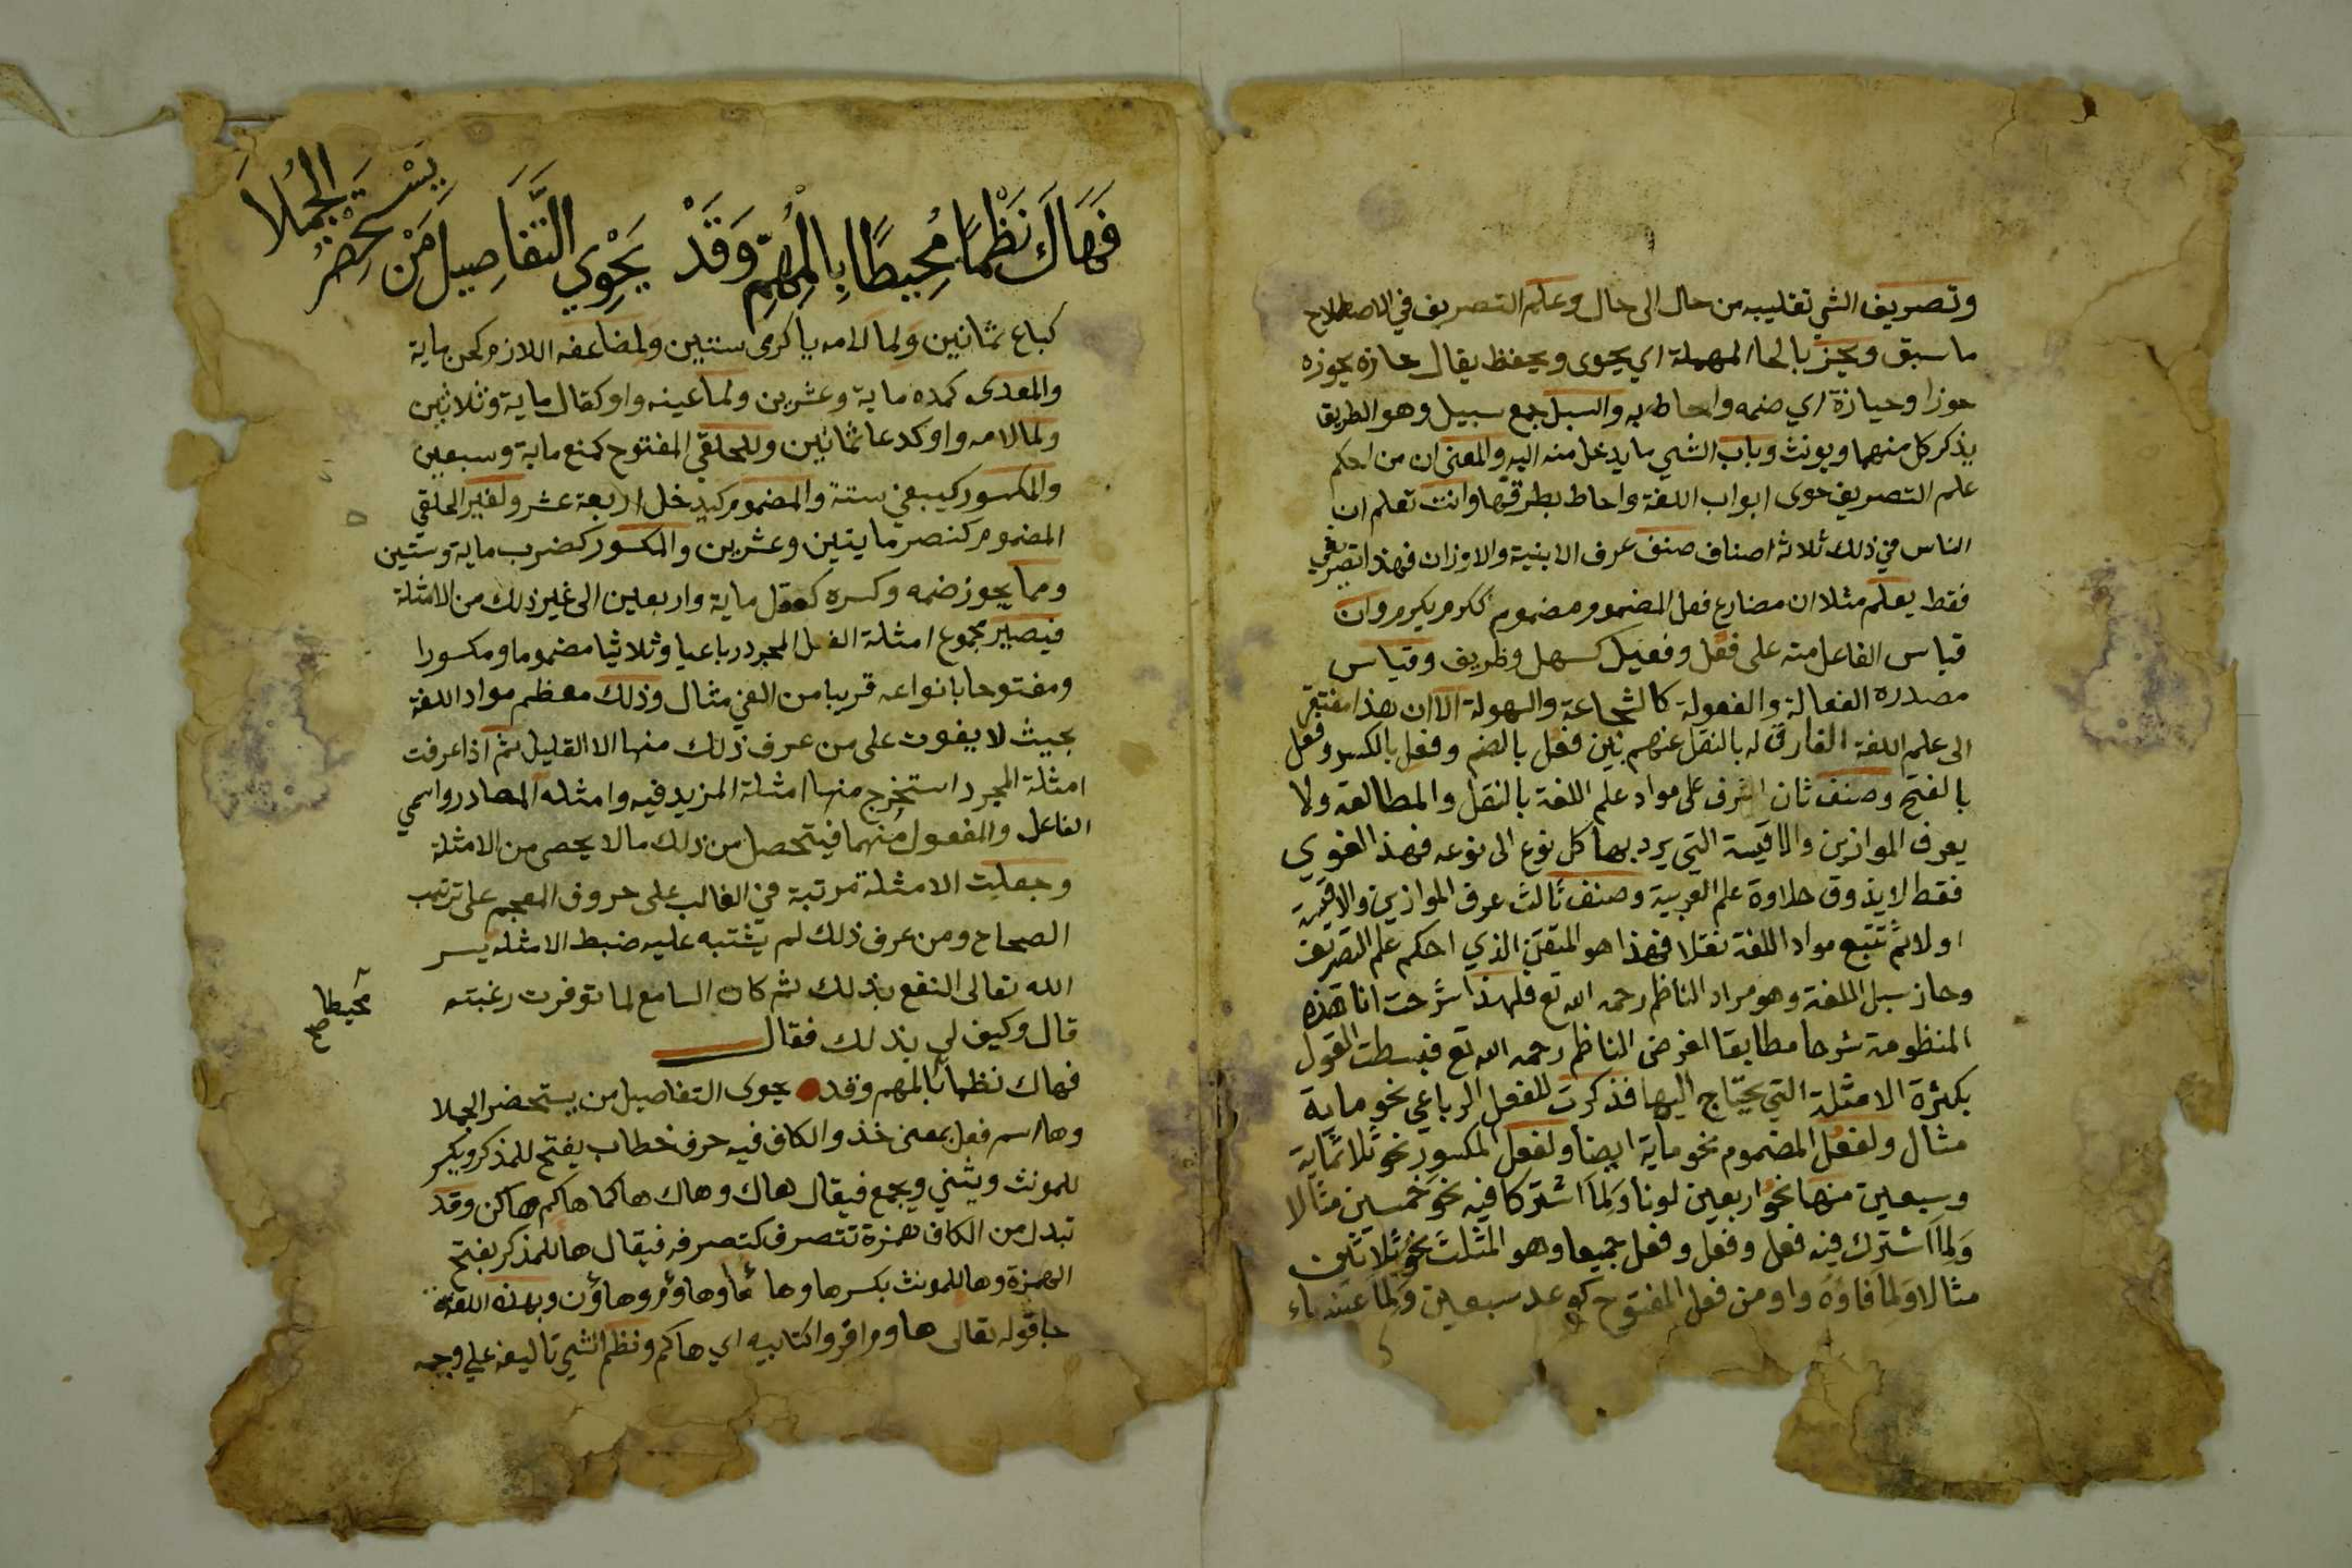 وتصريف الشي تقليبه من حال الى حال وعلم التصريف في الاصطلاح
ما سبق ويحز بالحا المهملة اي يحوى ويحفظ يقال حازه يحوزه
حوزا وحيازة اي ضمه واحاط به والسبل جمع سبيل وهو الطريق
يذكر كل منهما ويونث وباب الشي ما يدخل منه اليه والمعنى ان من احكم
علم التصريف حوى ابواب اللغة واحاط بطرقها وانت تعلم ان
الناس في ذلك ثلاثة اصناف صنف عرف الابنية والاوزان فهذا تصريفي
فقط يعلم مثلا ان مضارع فعل المضموم مضموم ككرم يكرم وان
قياس الفاعل منه على فعل وفعيل كسهل وظريف وقياس
مصدره الفعالة والفعولة كالشجاعة والسهولة الا ان هذا مفتقر
الى علم اللغة الفارق له بالنقل عنهم بين فعل بالضم وفعل بالكسر وفعل
بالفتح وصنف ثان اشرف على مواد علم اللغة بالنقل والمطالعة ولا
يعرف الموازين والاقيسة التي يرد بها كل نوع الى نوعه فهذا لغوي
فقط لا يذوق حلاوة علم العربية وصنف ثالث عرف الموازين والاقيسة
اولا ثم تتبع مواد اللغة نقلا فهذا هو المتقن الذي احكم علم التصريف
وحاز سبل اللغة وهو مراد الناظم رحمه الله تع فلهذا شرحت انا هذه
المنظومة شرحا مطابقا لغرض الناظم رحمه الله تع فبسطت القول
بكثرة الامثلة التي يحتاج اليها فذكرت للفعل الرباعي نحو ماية
مثال ولفعُل المضموم نحو ماية ايضا ولفعِل المكسور نحو ثلاثماية
وسبعين منها نحو اربعين لونا ولما اشتركا فيه نحو خمسين مثالا
ولما اشترك فيه فعل وفعل وفعل جميعا وهو المثلث نحو ثلاثين
مثالا ولما فاؤه واو من فعل المفتوح كوعد سبعين ولما عينه ياء
فَهَاكَ نَظْمًا مُحِيطًا بِالْمُهِمِّ وَقَدْ يَحْوِي التَّفَاصِيلَ مَنْ يَسْتَحْضِرُ الجُمَلَا
كباع ثمانين ولما لامه يا كرى ستين ولمضاعفه اللازم كحن ماية
والمعدى كمده ماية وعشرين ولما عينه واو كقال ماية وثلاثين
ولما لامه واو كدعا ثمانين وللحلقي المفتوح كمنع ماية وسبعين
والمكسور كيبغي ستة والمضموم كيدخل اربعة عشر ولغير الحلقي
المضموم كنصر مايتين وعشرين والمكسور كضرب ماية وستين
ومما يجوز ضمه وكسره كعقل ماية واربعين الى غير ذلك من الامثلة
فيصير مجموع امثلة الفعل المجرد رباعيا وثلاثيا مضموما ومكسورا
ومفتوحا بانواعه قريبا من الفي مثال وذلك معظم مواد اللغة
بحيث لا يفوت على من عرف ذلك منها الا القليل ثم اذا عرفت
امثلة المجرد استخرج منها امثلة المزيد فيه وامثله المصادر واسمي
الفاعل والمفعول منهما فيتحصل من ذلك ما لا يحصى من الامثلة
وجعلت الامثلة مرتبة في الغالب على حروف المعجم على ترتيب
الصحاح ومن عرف ذلك لم يشتبه عليه ضبط الامثلة يسر
الله تعالى النفع بذلك ثم كان السامع لما توفرت رغبته
قال وكيف لي بذلك فقال
فهاك نظما بالمهم وقد يحوى التفاصيل من يستحضر الجملا
محيطا صح
وها اسم فعل بمعنى خذ والكاف فيه حرف خطاب يفتح للمذكر ويكسر
للمونث ويثني ويجمع فيقال هاك وهاك هاكما هاكم هاكن وقد
تبدل من الكاف همزة تتصرف كتصرفه فيقال هاء للمذكر بفتح
الهمزة وها للمونث بكسرها وهاؤما وهاؤم وهاؤن وبهذه اللغة
جا قوله تعالى هاوم اقرواكتابيه اي هاكم ونظم الشي تاليفه على وجه